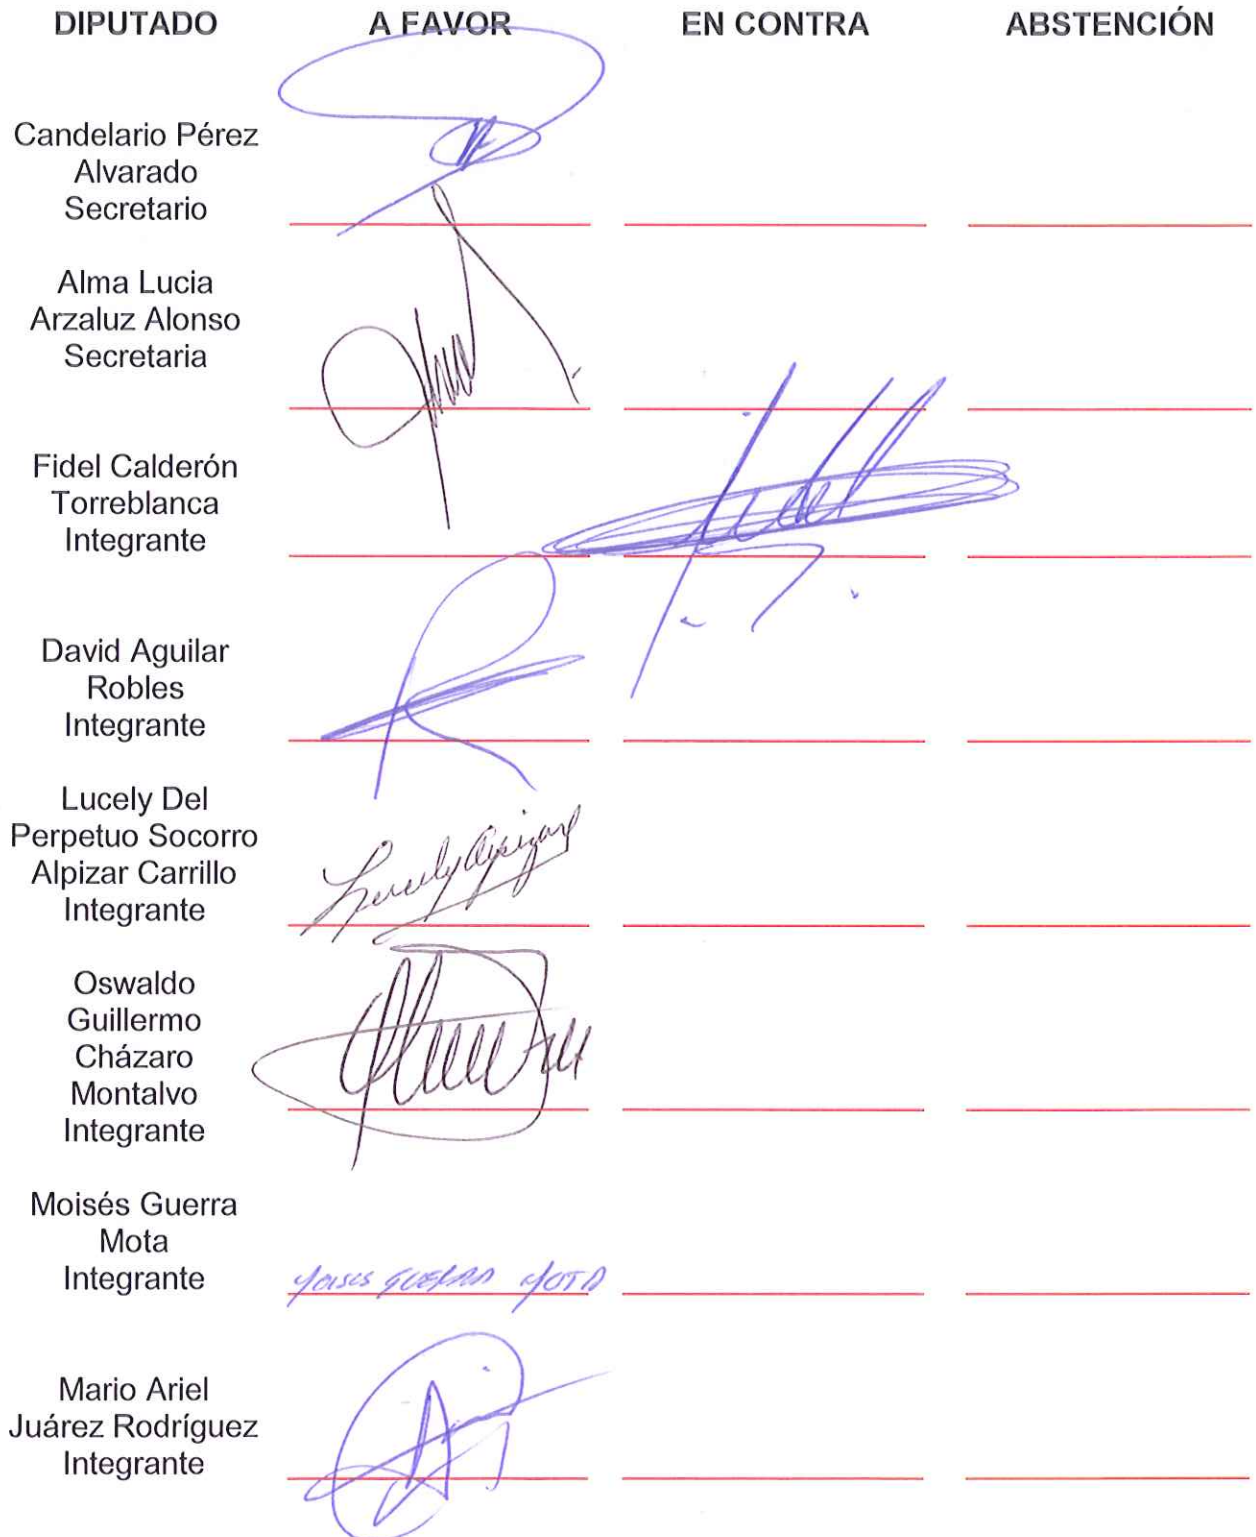 DIPUTADO A FAVOR EN CONTRA ABSTENCIÓN
Candelario Pérez
Alvarado
Secretario
Alma Lucia
Arzaluz Alonso
Secretaria
Fidel Calderón
Torreblanca
Integrante
David Aguilar
Robles
Integrante
Lucely Del
Perpetuo Socorro
Alpizar Carrillo
Integrante
Lucely Alpizar
Oswaldo
Guillermo
Cházaro
Montalvo
Integrante
Moisés Guerra
Mota
Integrante
MOISES GUERRA MOTA
Mario Ariel
Juárez Rodríguez
Integrante